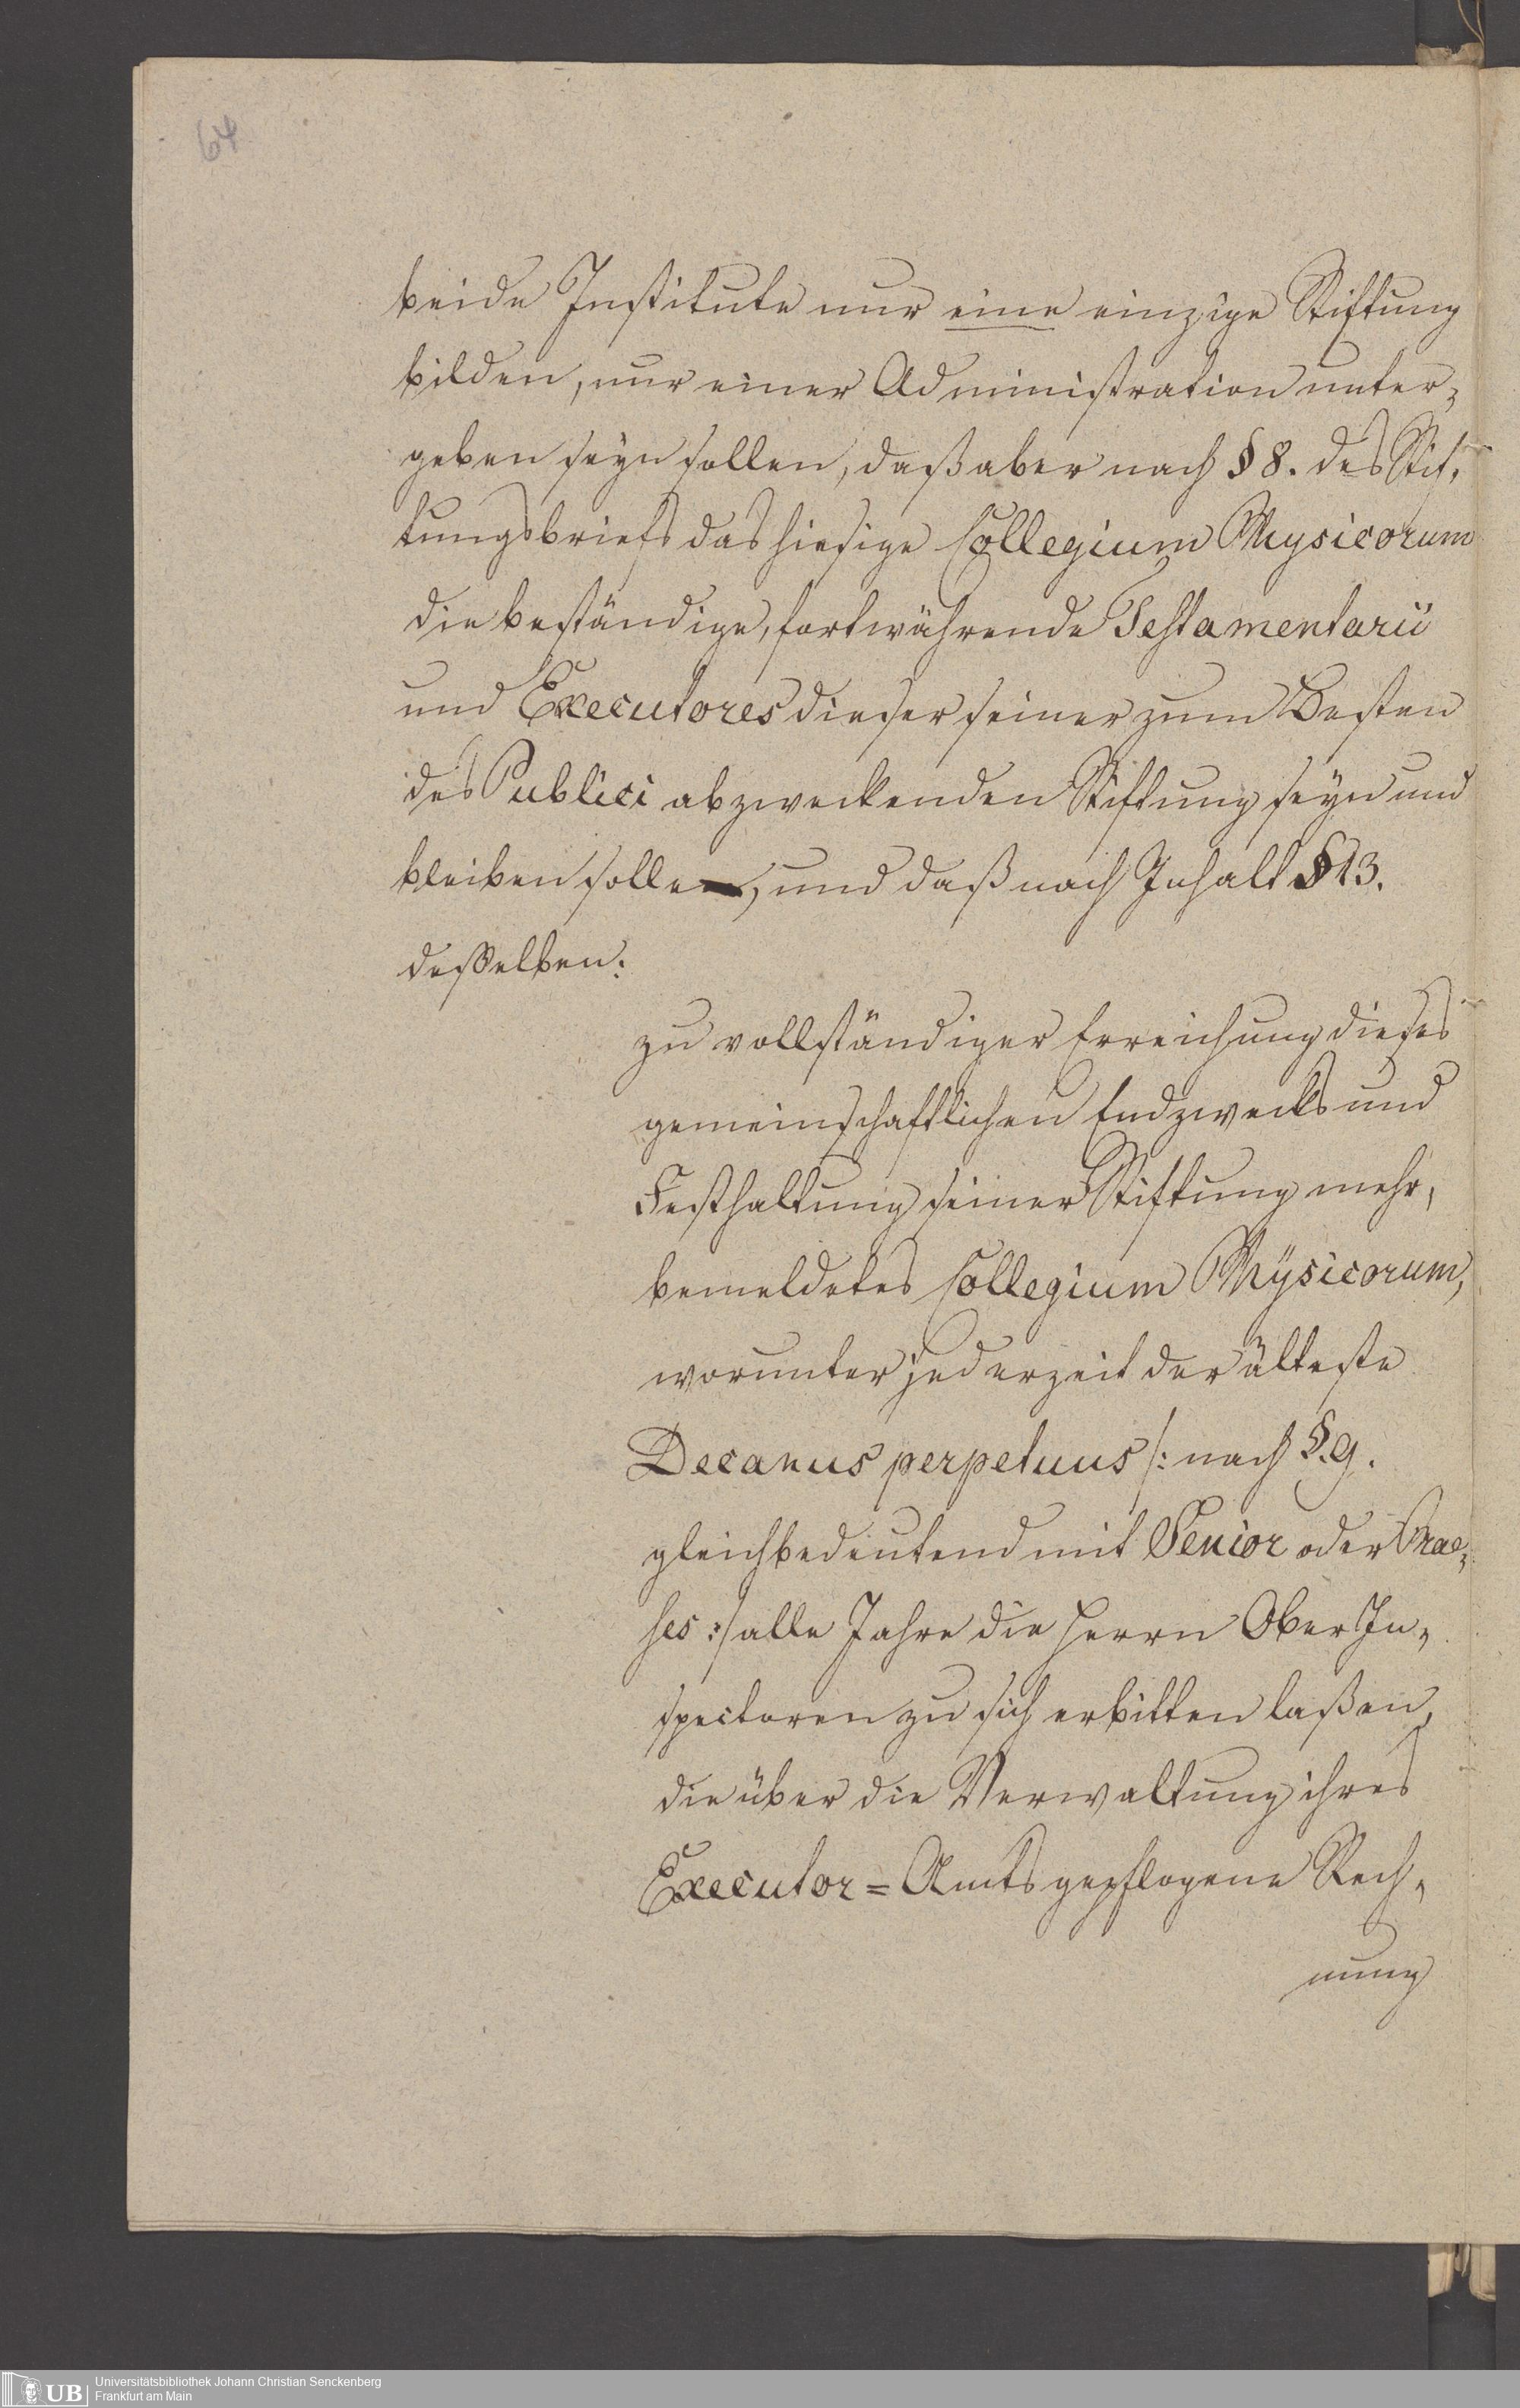 64
beide Institute nur eine einzige Stiftung
bilden, nur einer Administration unter-
geben seyn sollen, daß aber nach § 8. des Stif-
tungsbriefs das hiesige Collegium Physicorum
die beständige, fortwährende Testamentarii
und Executores dieser seiner zum Besten
des Publici abzweckenden Stiftung seyn und
bleiben solle, und daß nach Inhalt § 13.
desselben:
zu vollständiger Erreichung dieses
gemeinschaftlichen Endzwecks und
Festhaltung seiner Stiftung mehr-
bemeldetes Collegium Physicorum,
worunter jederzeit der älteste
Decanus perpetuus /: nach §. 9.
gleichbedeutend mit Senior oder Prae-
ses :/ alle Jahre die Herrn Ober In-
spectoren zu sich erbitten laßen,
die über die Verwaltung ihres
Executor=Amts gepflogene Rech-
nung
UB Universitätsbibliothek Johann Christian Senckenberg
Frankfurt am Main